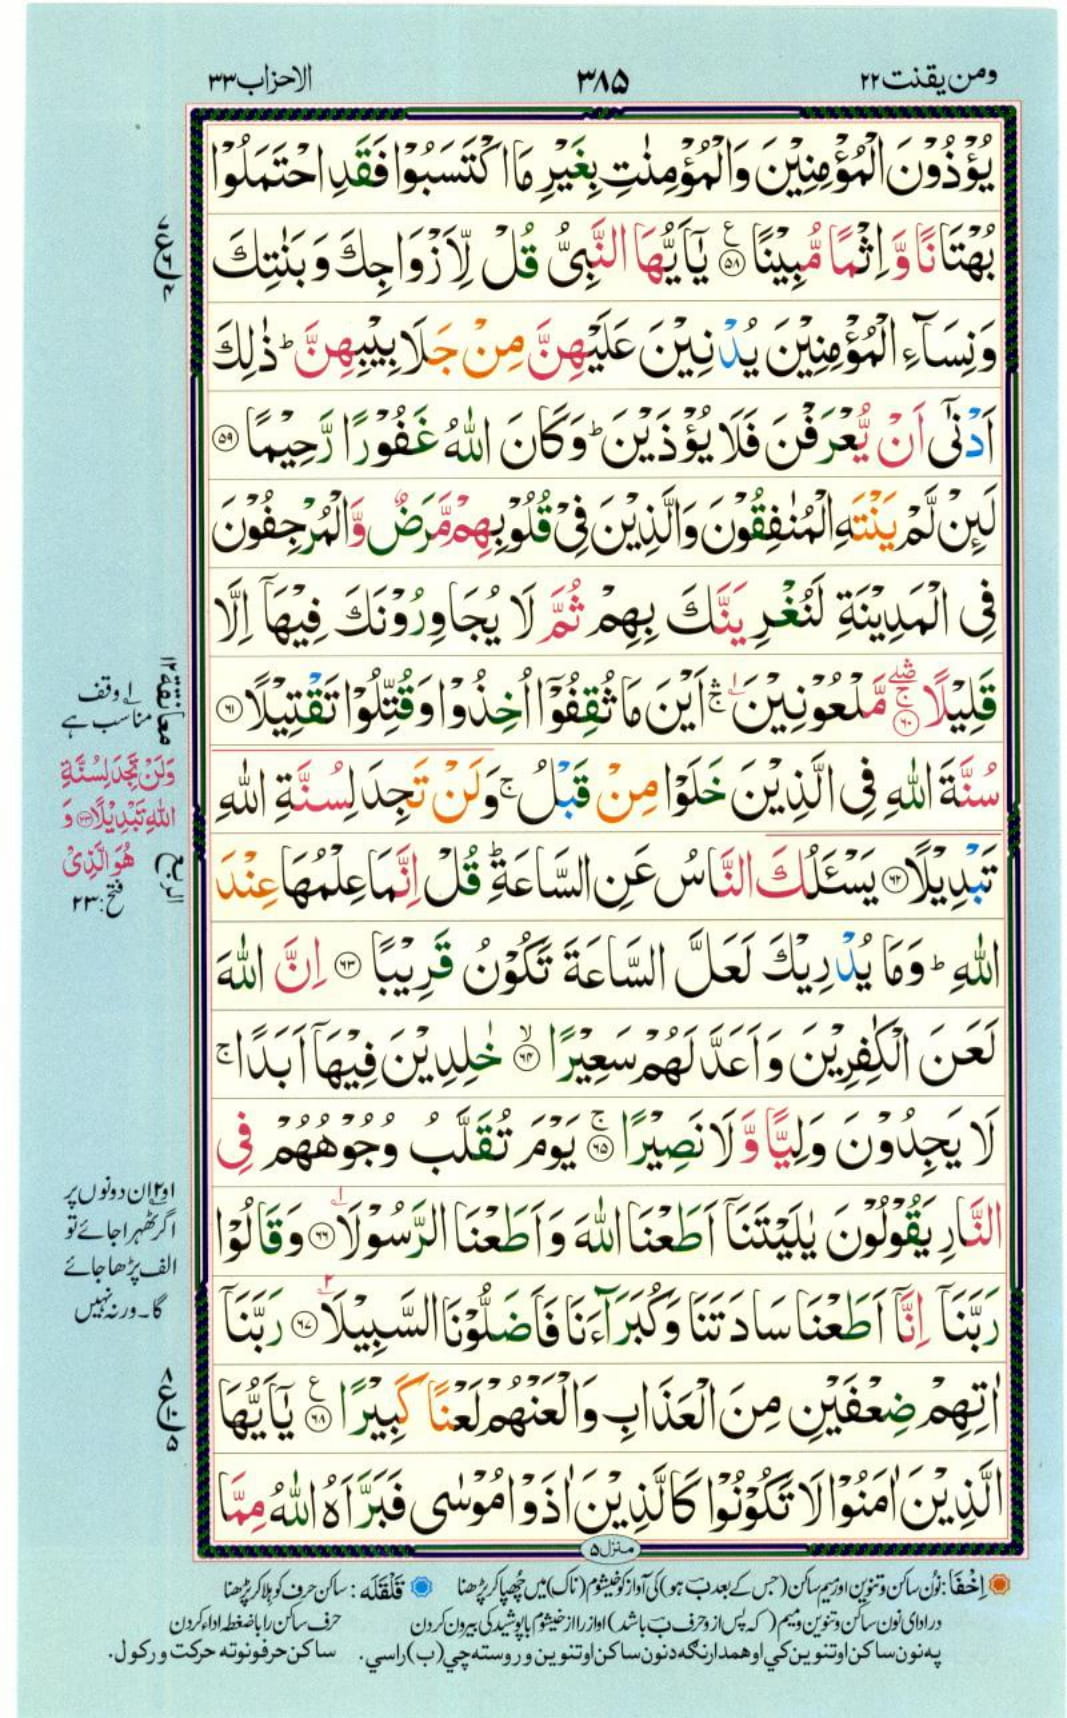 ومن یقنت ۲۲
۳۸۵
الاحزاب ۳۳
يُؤْذُوْنَ الْمُؤْمِنِيْنَ وَالْمُؤْمِنٰتِ بِغَيْرِ مَا اكْتَسَبُوْا فَقَدِ احْتَمَلُوْا
بُهْتَانًا وَّ اِثْمًا مُّبِيْنًا ۝۵۸ۧ يٰۤاَيُّهَا النَّبِىُّ قُلْ لِّاَزْوَاجِكَ وَ بَنٰتِكَ
وَنِسَآءِ الْمُؤْمِنِيْنَ يُدْنِيْنَ عَلَيْهِنَّ مِنْ جَلَابِيْبِهِنَّ ؕ ذٰلِكَ
اَدْنٰٓى اَنْ يُّعْرَفْنَ فَلَا يُؤْذَيْنَ ؕ وَكَانَ اللّٰهُ غَفُوْرًا رَّحِيْمًا ۝۵۹
لَىِٕنْ لَّمْ يَنْتَهِ الْمُنٰفِقُوْنَ وَالَّذِيْنَ فِىْ قُلُوْبِهِمْ مَّرَضٌ وَّالْمُرْجِفُوْنَ
فِى الْمَدِيْنَةِ لَنُغْرِيَنَّكَ بِهِمْ ثُمَّ لَا يُجَاوِرُوْنَكَ فِيْهَاۤ اِلَّا
قَلِيْلًا ۝۶۰ۛۚۖ مَّلْعُوْنِيْنَ ۛۚ اَيْنَ مَا ثُقِفُوْۤا اُخِذُوْا وَقُتِّلُوْا تَقْتِيْلًا ۝۶۱
سُنَّةَ اللّٰهِ فِى الَّذِيْنَ خَلَوْا مِنْ قَبْلُ ۚ وَلَنْ تَجِدَ لِسُنَّةِ اللّٰهِ
تَبْدِيْلًا ۝۶۲ يَسْـَٔلُكَ النَّاسُ عَنِ السَّاعَةِ ؕ قُلْ اِنَّمَا عِلْمُهَا عِنْدَ
اللّٰهِ ؕ وَمَا يُدْرِيْكَ لَعَلَّ السَّاعَةَ تَكُوْنُ قَرِيْبًا ۝۶۳ اِنَّ اللّٰهَ
لَعَنَ الْكٰفِرِيْنَ وَاَعَدَّ لَهُمْ سَعِيْرًا ۝۶۴ۙ خٰلِدِيْنَ فِيْهَاۤ اَبَدًا ۚ
لَا يَجِدُوْنَ وَلِيًّا وَّ لَا نَصِيْرًا ۝۶۵ۚ يَوْمَ تُقَلَّبُ وُجُوْهُهُمْ فِى
النَّارِ يَقُوْلُوْنَ يٰلَيْتَنَاۤ اَطَعْنَا اللّٰهَ وَاَطَعْنَا الرَّسُوْلَا۠ ۝۶۶ وَقَالُوْا
رَبَّنَاۤ اِنَّاۤ اَطَعْنَا سَادَتَنَا وَكُبَرَآءَنَا فَاَضَلُّوْنَا السَّبِيْلَا۠ ۝۶۷ رَبَّنَاۤ
اٰتِهِمْ ضِعْفَيْنِ مِنَ الْعَذَابِ وَالْعَنْهُمْ لَعْنًا كَبِيْرًا ۝۶۸ۧ يٰۤاَيُّهَا
الَّذِيْنَ اٰمَنُوْا لَا تَكُوْنُوْا كَالَّذِيْنَ اٰذَوْا مُوْسٰى فَبَرَّاَهُ اللّٰهُ مِمَّا
منزل ۵
معانقة ۱۲
۱ وقف
مناسب ہے
وَلَنْ تَجِدَ لِسُنَّةِ
اللّٰهِ تَبْدِيْلًا ۝۲۳ وَ
هُوَ الَّذِىْ
فتح: ۲۳
الربع
۱ و۲ ان دونوں پر
اگر ٹھہرا جائے تو
الف پڑھا جائے
گا۔ ورنہ نہیں
اِخْفَا: نُون ساکن و تنوین اور میم ساکن (جس کے بعد ب ہو) کی آواز کو خیشوم (ناک) میں چُھپا کر پڑھنا
قَلْقَلَه: ساکن حرف کو ہلا کر پڑھنا
در ادای نون ساکن و تنوین و میم (که پس از و حرف ب باشد) اواز را از خیشوم با پوشیدگی بیرون کردن
حرف ساکن را با ضغط اداء کردن
په نون ساکن او تنوین کي او همدارنګه د نون ساکن او تنوین وروسته چي (ب) راسي.
ساکن حرفونو ته حرکت ورکول.